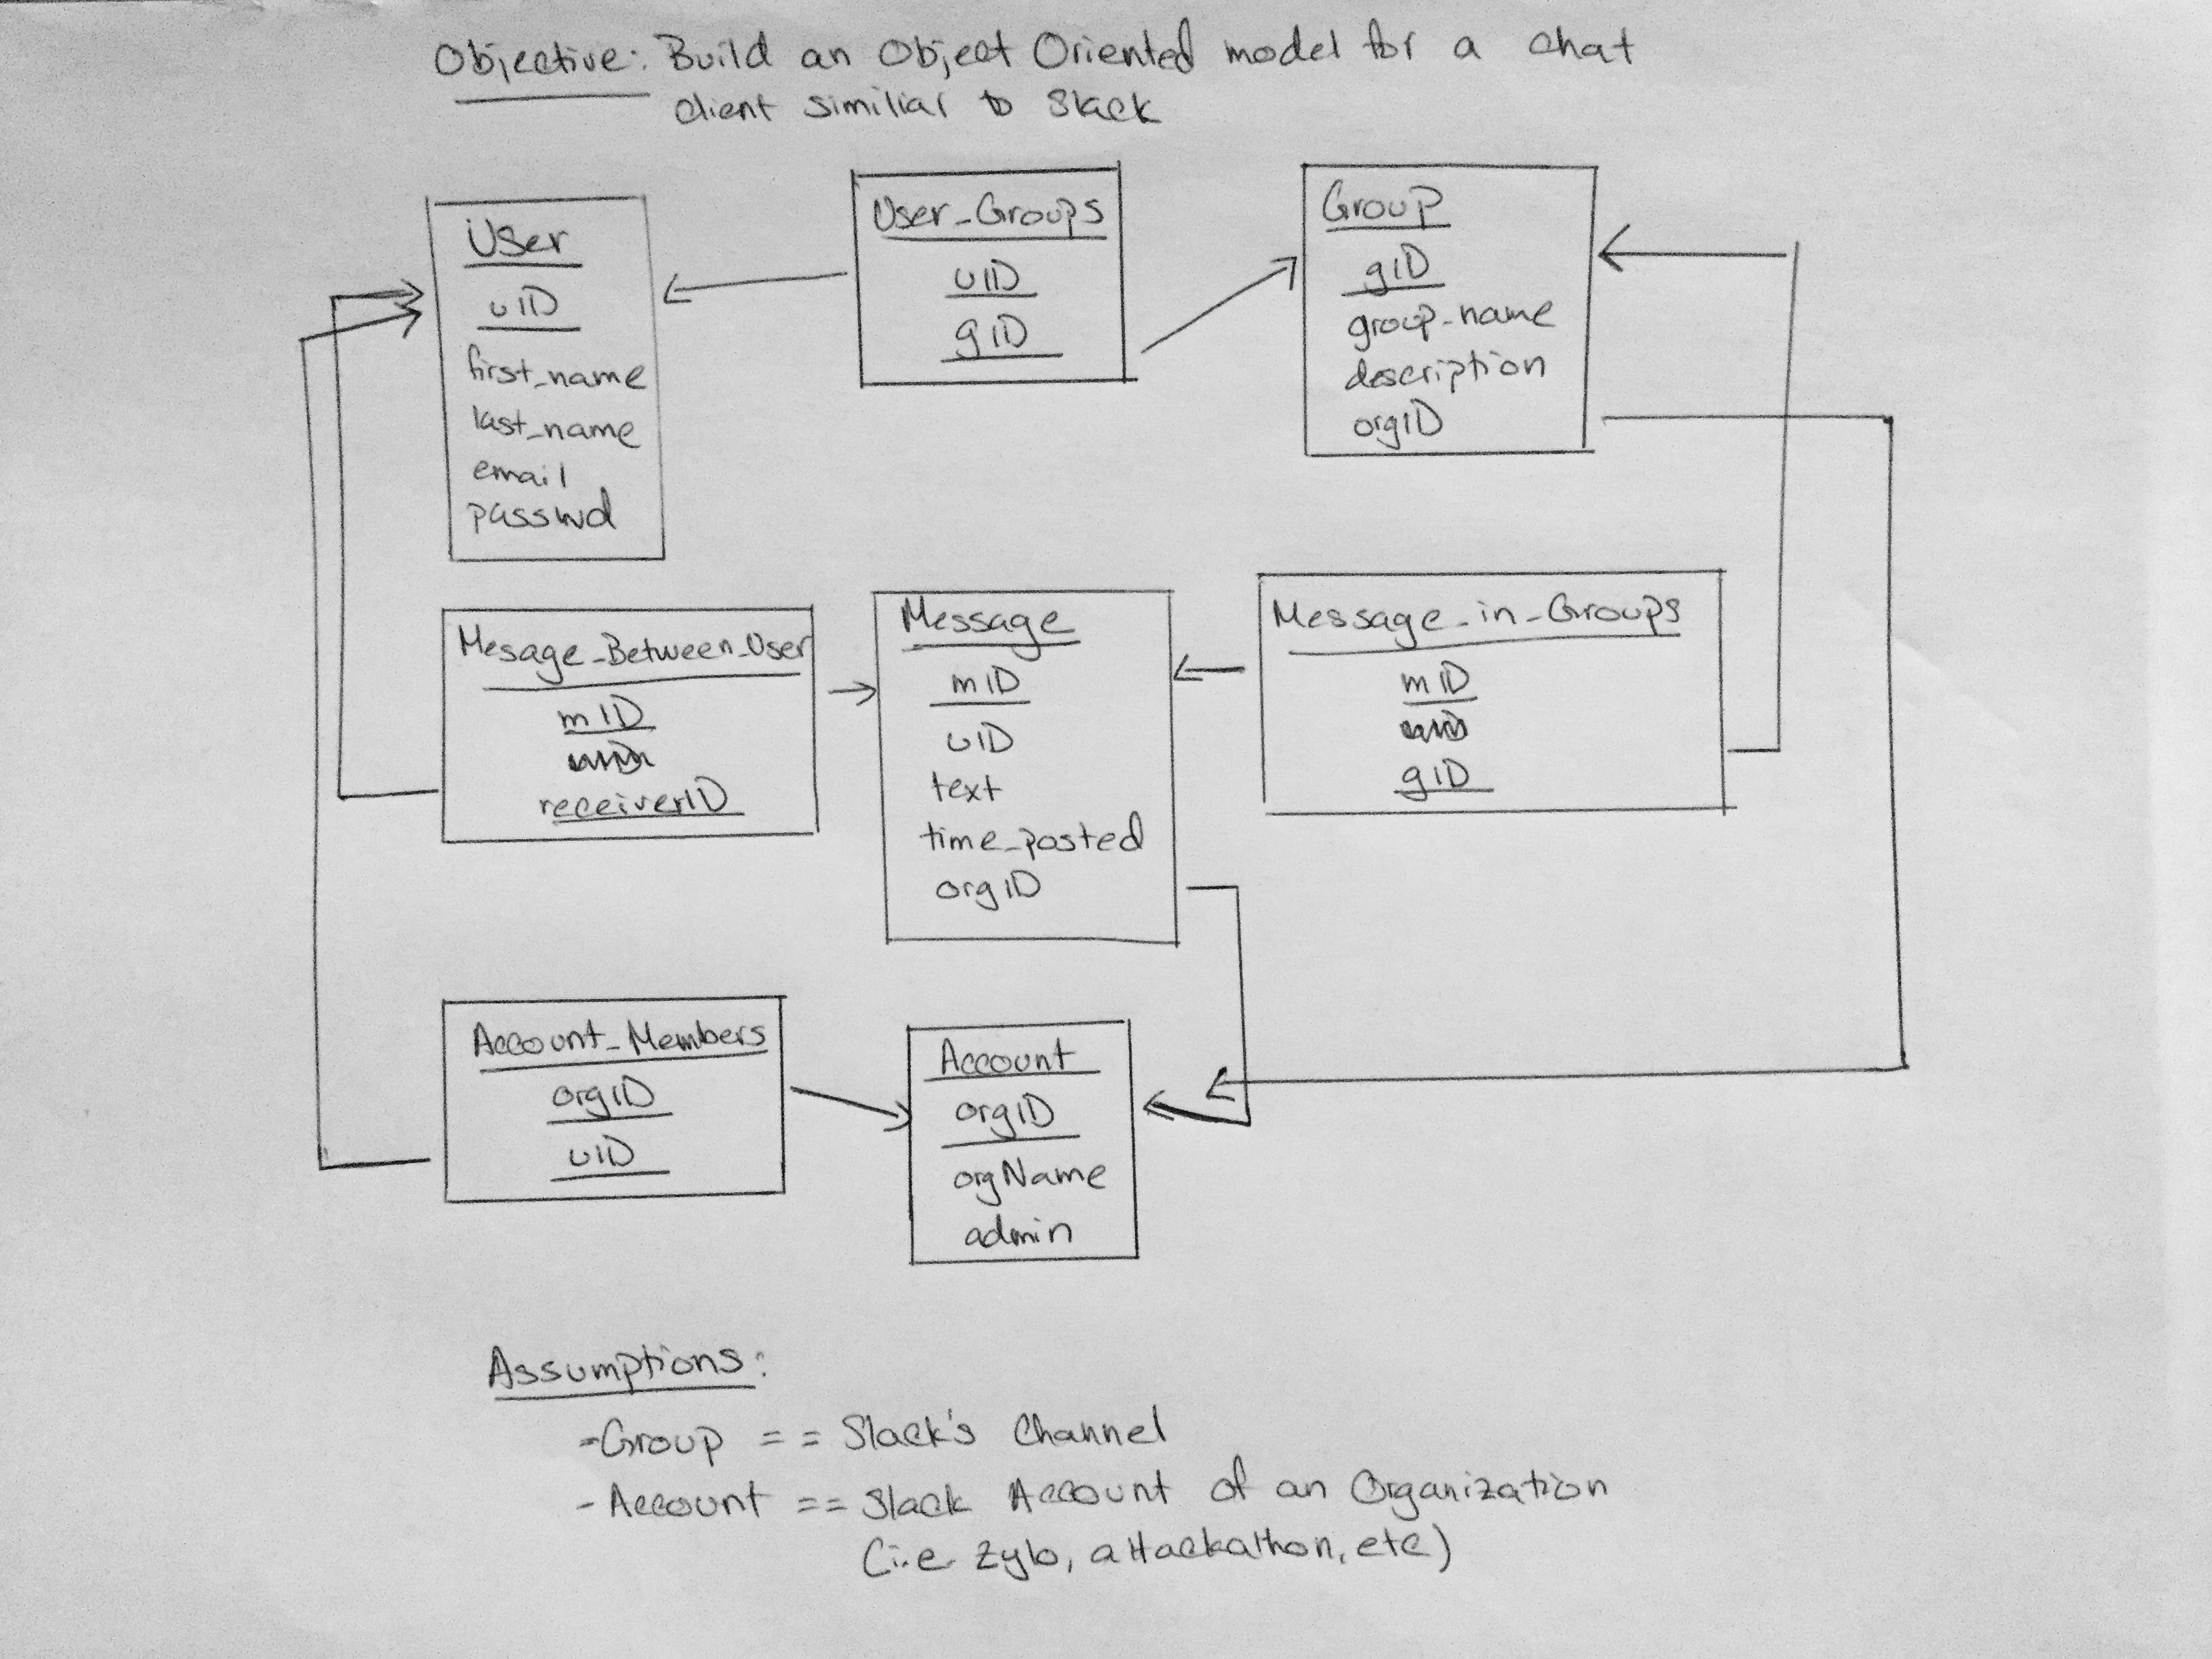 Objective: Build an Object Oriented model for a chat
client similiar to Slack
User
uID
first_name
last_name
email
passwd
User_Groups
uID
gID
Group
gID
group_name
description
orgID
Mesage_Between_User
mID
receiverID
Message
mID
uID
text
time_posted
orgID
Message_in_Groups
mID
gID
Account_Members
orgID
uID
Account
orgID
orgName
admin
Assumptions:
-Group == Slack's Channel
- Account == Slack Account of an Organization
(i.e. Zylo, a Hackathon, etc)